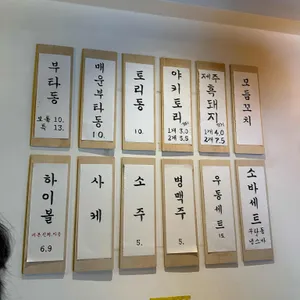 부타동
보통 10.
특 13.
매운부타동
10.
토리동
10.
야키토리
1개 3.0
2개 5.5
제주
흑돼지
1개 4.0
2개 7.5
모듬꼬치
하이볼
6.9
사케
소주
5.
병맥주
5.
우동세트
소바세트